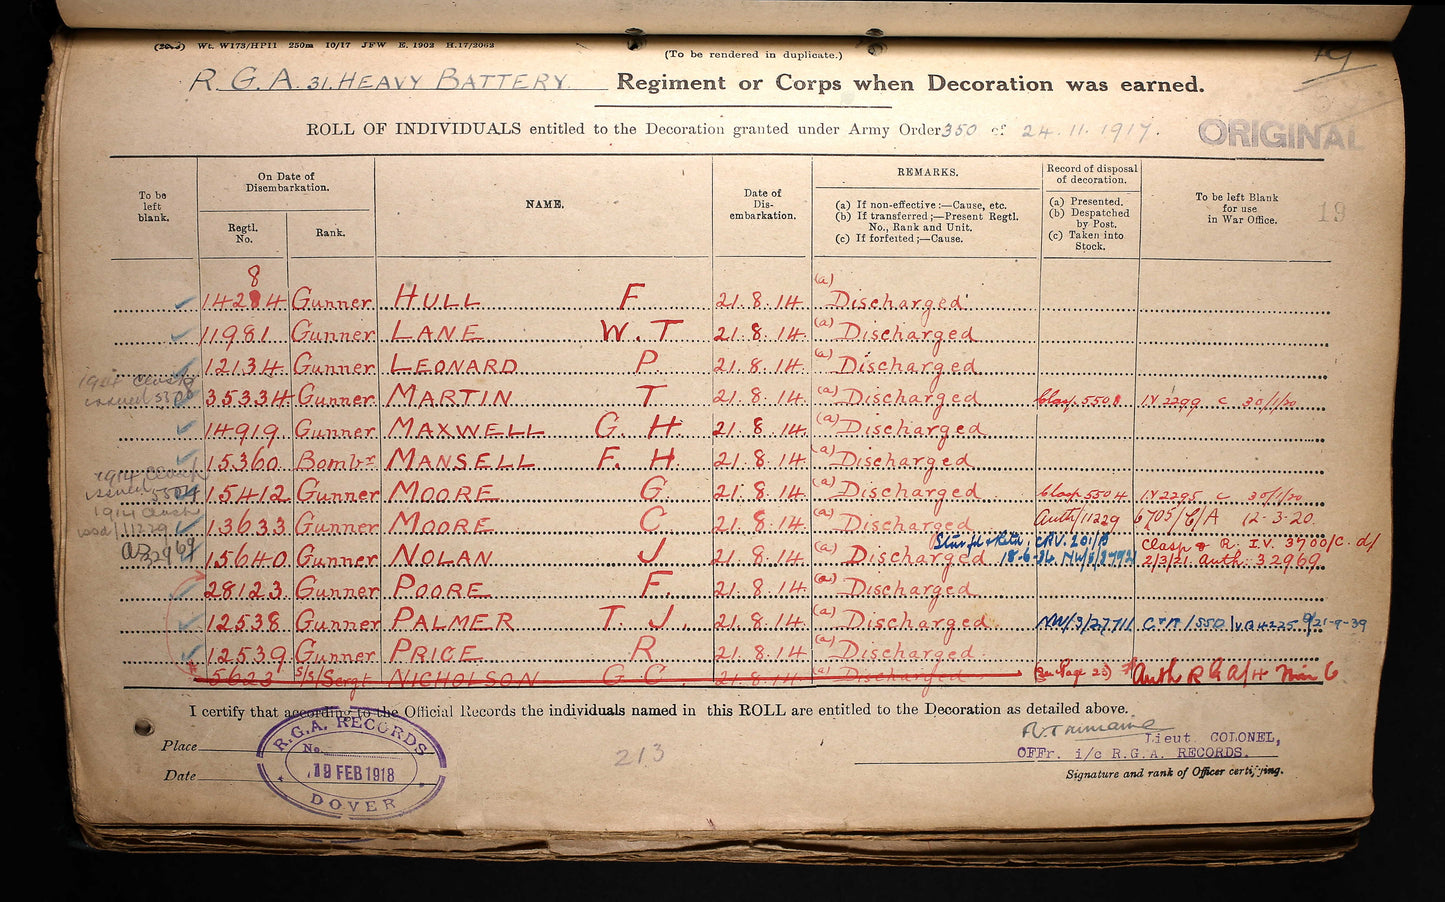 Wt. W173/HP11 250m 10/17 JFW E. 1902 H.17/2062
(To be rendered in duplicate.)
R.G.A. 31. HEAVY BATTERY. Regiment or Corps when Decoration was earned.
ROLL OF INDIVIDUALS entitled to the Decoration granted under Army Order 350 of 24.11.1917.
ORIGINAL
19
To be left blank.
On Date of Disembarkation.
Regtl. No.
Rank.
NAME.
Date of Dis-embarkation.
REMARKS.
(a) If non-effective:—Cause, etc.
(b) If transferred;—Present Regtl. No., Rank and Unit.
(c) If forfeited;—Cause.
Record of disposal of decoration.
(a) Presented.
(b) Despatched by Post.
(c) Taken into Stock.
To be left Blank for use in War Office.
8
14284 Gunner HULL F 21.8.14 (a) Discharged
11981 Gunner LANE W.T 21.8.14 (a) Discharged
12134 Gunner LEONARD P. 21.8.14 (a) Discharged
1914 Clasp issued
35334 Gunner MARTIN T 21.8.14 (a) Discharged Clasp 5508 IV 2299 C 30/1/20
14919 Gunner MAXWELL G. H. 21.8.14 (a) Discharged
15360 Bombr MANSELL F. H. 21.8.14 (a) Discharged
1914 Clasp issued 5504
15412 Gunner MOORE G. 21.8.14 (a) Discharged Clasp 5504 IV 2295 C 30/1/20
1914 Clasp issd 11229
13633 Gunner MOORE C. 21.8.14 (a) Discharged Auth/11229 6705/C/A 12-3-20.
32969
15640 Gunner NOLAN J. 21.8.14 (a) Discharged 18-6-36 Clasp & R. I.V. 3700/C. d/ 2/3/21 auth: 32969
28123 Gunner POORE F. 21.8.14 (a) Discharged
12538 Gunner PALMER T. J. 21.8.14 (a) Discharged NW/3/27711
12539 Gunner PRICE R 21.8.14 (a) Discharged
15623 S/S/Sergt NICHOLSON G C. 21.8.14 (a) Discharged (See Page 23) Auth R G A/4
I certify that according to the Official Records the individuals named in this ROLL are entitled to the Decoration as detailed above.
Place
Date
R.G.A. RECORDS
No.
19 FEB 1918
DOVER
213
Lieut COLONEL,
OFFr. i/c R.G.A. RECORDS.
Signature and rank of Officer certifying.